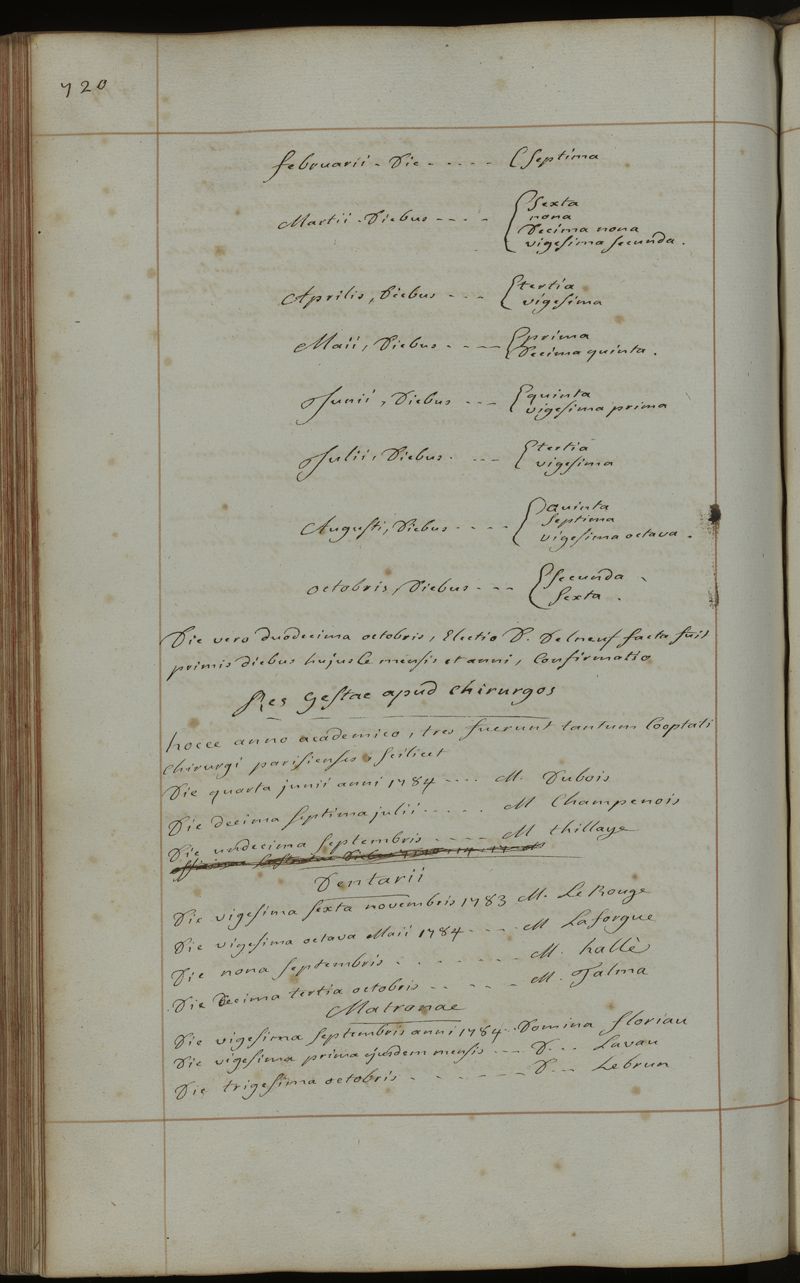 720
februarii - Die - - - - - { Septima
Martii - Diebus - - - - { Sexta
nona
Decima nona
vigesima secunda .
Aprilis, Diebus - - - { tertia
vigesima
Maii, Diebus - - - - { prima
Decima quinta .
Junii, Diebus - - - { quinta
vigesima prima
Julii, Diebus . - - - { tertia
vigesima
Augusti, Diebus - - - - { Quinta
Septima
vigesima octava .
octobris, Diebus - - - { secunda
Sexta .
Die vero duodecima octobris, Electio D. Delneuf facta fuit
primis diebus hujusce mensis et anni, Confirmatio
Res Gestae apud Chirurgos
hocce anno academico, tres fuerunt tantum Cooptati
Chirurgi parisienses, scilicet
Die quarta junii anni 1784 - - - - M. Dubois
Die decima septima julii - - - - - M Champenois
Die undecima septembris - - - - M thillaye
Dentarii
Die vigesima sexta novembris 1783 M. Le Rouge
Die vigesima octava Maii 1784 - - - - M Laforgue
Die nona septembris - - - - - - - M. hallè
Die Decima tertia octobris - - - - - M. Talma
Matronae
Die vigesima septembris anni 1784 - - Domina floriau
Die vigesima prima ejusdem mensis - - - D - - - Lavau
Die trigesima octobris - - - - - - - D - - - Lebrun